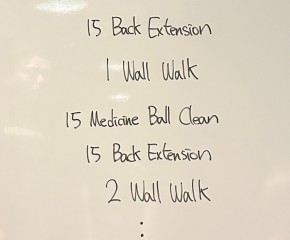 15 Back Extension
1 Wall Walk
15 Medicine Ball Clean
15 Back Extension
2 Wall Walk
⋮